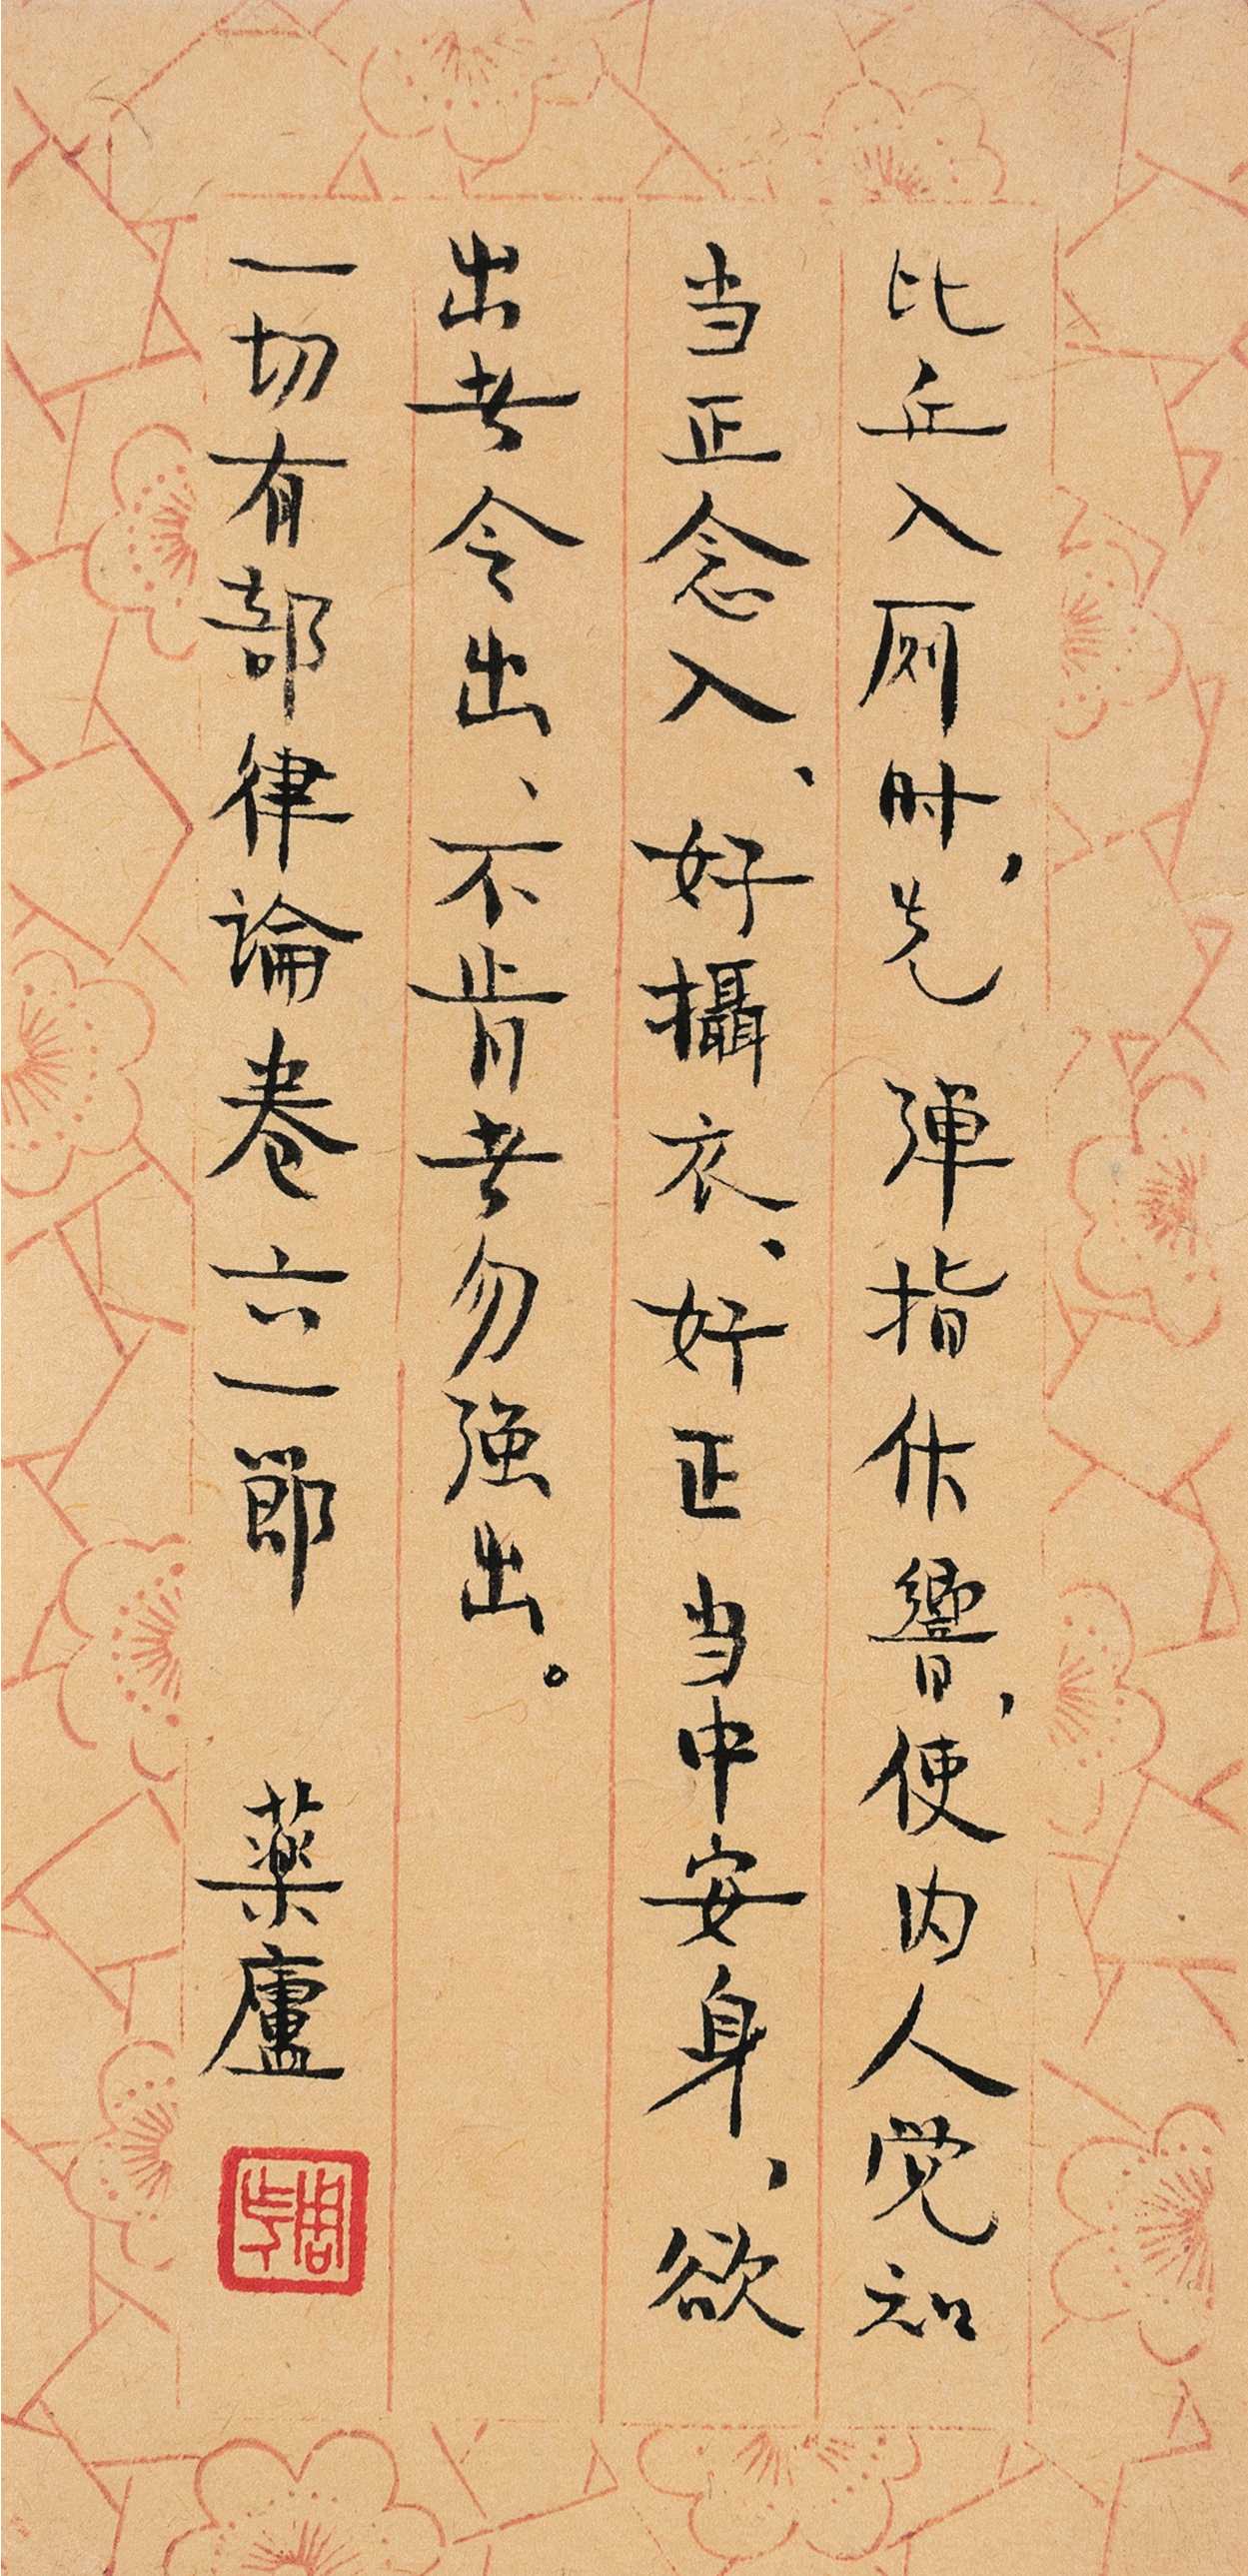 比丘入厕时，先弹指作響，使内人觉知
当正念入、好攝衣、好正当中安身，欲
出者令出、不肯者勿强出。
一切有部律論卷六一節　薬廬